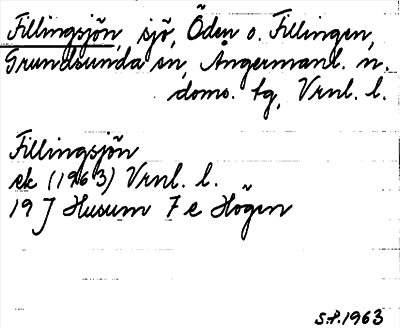 Fillingsjön, sjö, Öden o. Fillingen,
Grundsunda sn, Ångermanl. n.
doms. tg, Vrnl. l.
Fillingsjön
ek (1963) Vrnl. l.
19 J Husum 7 e Högen
S.P. 1963